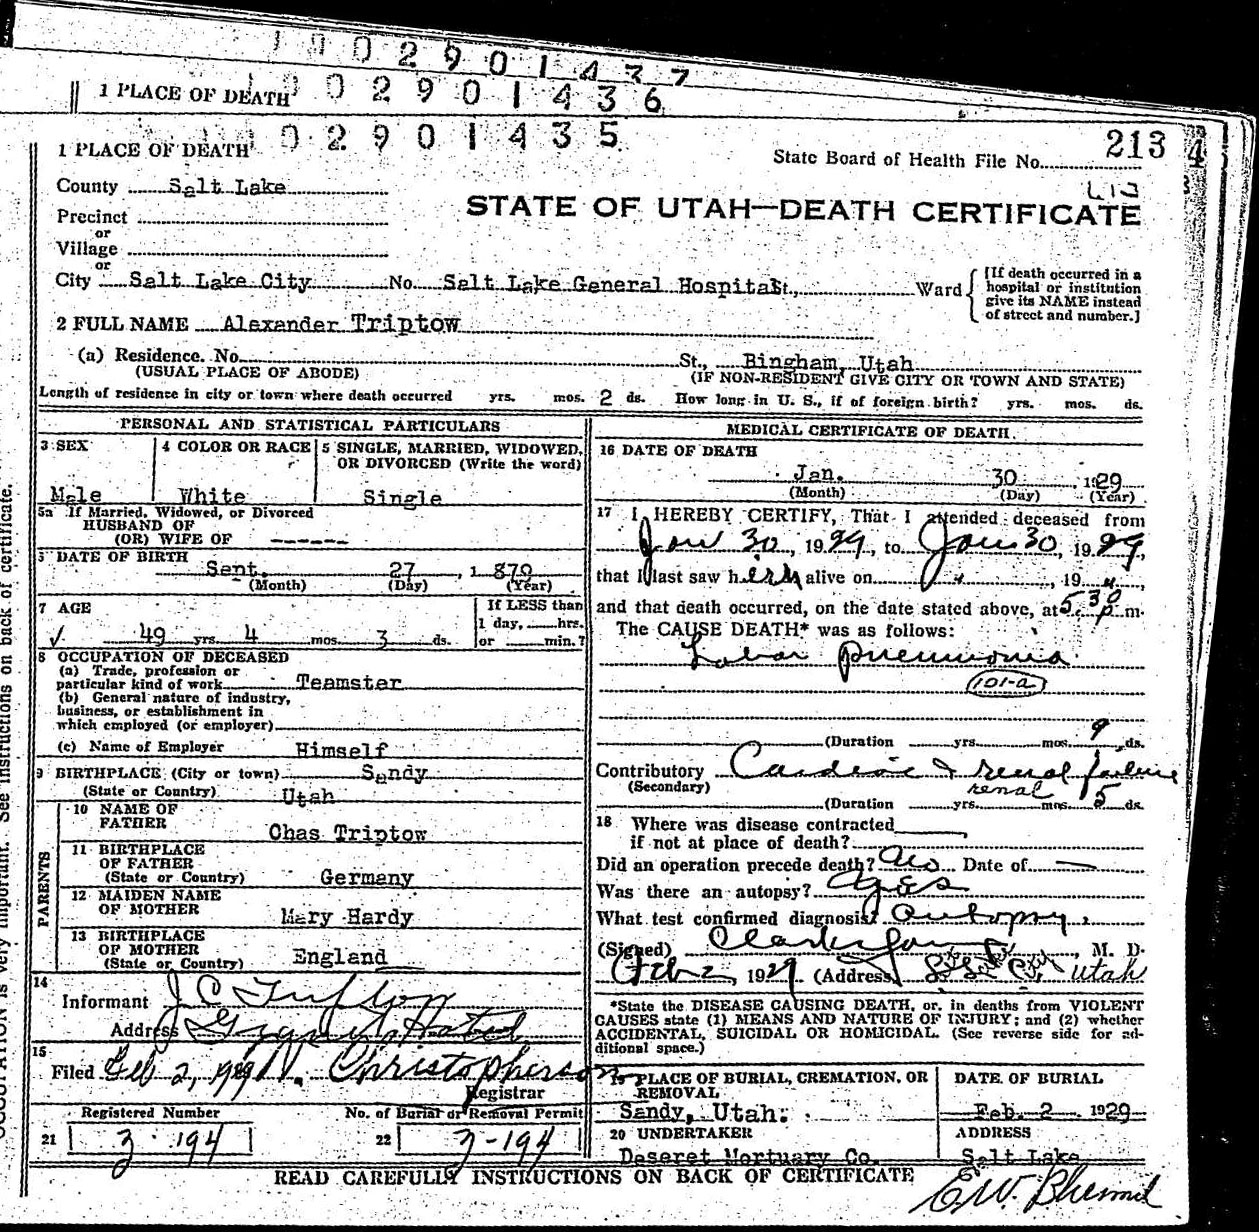 0 0 2 9 0 1 4 3 7
1 PLACE OF DEATH 0 2 9 0 1 4 3 6
0 2 9 0 1 4 3 5
1 PLACE OF DEATH
State Board of Health File No. 213
County Salt Lake
STATE OF UTAH—DEATH CERTIFICATE
Precinct
or
Village
or
City Salt Lake City No. Salt Lake General Hospital St., Ward
[If death occurred in a
hospital or institution
give its NAME instead
of street and number.]
2 FULL NAME Alexander Triptow
(a) Residence. No. St., Bingham, Utah
(USUAL PLACE OF ABODE) (IF NON-RESIDENT GIVE CITY OR TOWN AND STATE)
Length of residence in city or town where death occurred yrs. mos. 2 ds. How long in U. S., if of foreign birth? yrs. mos. ds.
PERSONAL AND STATISTICAL PARTICULARS
3 SEX
Male
4 COLOR OR RACE
White
5 SINGLE, MARRIED, WIDOWED,
OR DIVORCED (Write the word)
Single
5a If Married, Widowed, or Divorced
HUSBAND OF
(OR) WIFE OF ------
DATE OF BIRTH
Sept. 27, 1879
(Month) (Day) (Year)
7 AGE
49 yrs. 4 mos. 3 ds.
If LESS than
1 day, hrs.
or min.?
8 OCCUPATION OF DECEASED
(a) Trade, profession or
particular kind of work Teamster
(b) General nature of industry,
business, or establishment in
which employed (or employer)
(c) Name of Employer Himself
9 BIRTHPLACE (City or town) Sandy
(State or Country) Utah
PARENTS
10 NAME OF
FATHER Chas Triptow
11 BIRTHPLACE
OF FATHER
(State or Country) Germany
12 MAIDEN NAME
OF MOTHER Mary Hardy
13 BIRTHPLACE
OF MOTHER
(State or Country) England
14
Informant J C
Address Hotel
15
Filed Feb 2, 1929 Christopherson
Registrar
Registered Number No. of Burial or Removal Permit
21 3 194 22 3-194
MEDICAL CERTIFICATE OF DEATH.
16 DATE OF DEATH
Jan. 30 1929
(Month) (Day) (Year)
17 I HEREBY CERTIFY, That I attended deceased from
Jan 30, 1929, to Jan 30, 1929,
that I last saw him alive on " , 19 "
and that death occurred, on the date stated above, at 5:30 p m.
The CAUSE DEATH* was as follows:
Lobar pneumonia
101-a
(Duration yrs. mos. 9 ds.
Contributory Cardiac & renal failure
(Secondary) renal
(Duration yrs. mos. 5 ds.
18 Where was disease contracted
if not at place of death?
Did an operation precede death? No Date of —
Was there an autopsy? Yes
What test confirmed diagnosis? Autopsy.
(Signed) M. D.
Feb 2, 1929 (Address Utah
*State the DISEASE CAUSING DEATH, or, in deaths from VIOLENT
CAUSES state (1) MEANS AND NATURE OF INJURY; and (2) whether
ACCIDENTAL, SUICIDAL OR HOMICIDAL. (See reverse side for ad-
ditional space.)
19 PLACE OF BURIAL, CREMATION, OR
REMOVAL
Sandy, Utah.
DATE OF BURIAL
Feb. 2 1929
20 UNDERTAKER
Deseret Mortuary Co.
ADDRESS
Salt Lake
READ CAREFULLY INSTRUCTIONS ON BACK OF CERTIFICATE
E.W.
OCCUPATION is very important. See instructions on back of certificate.